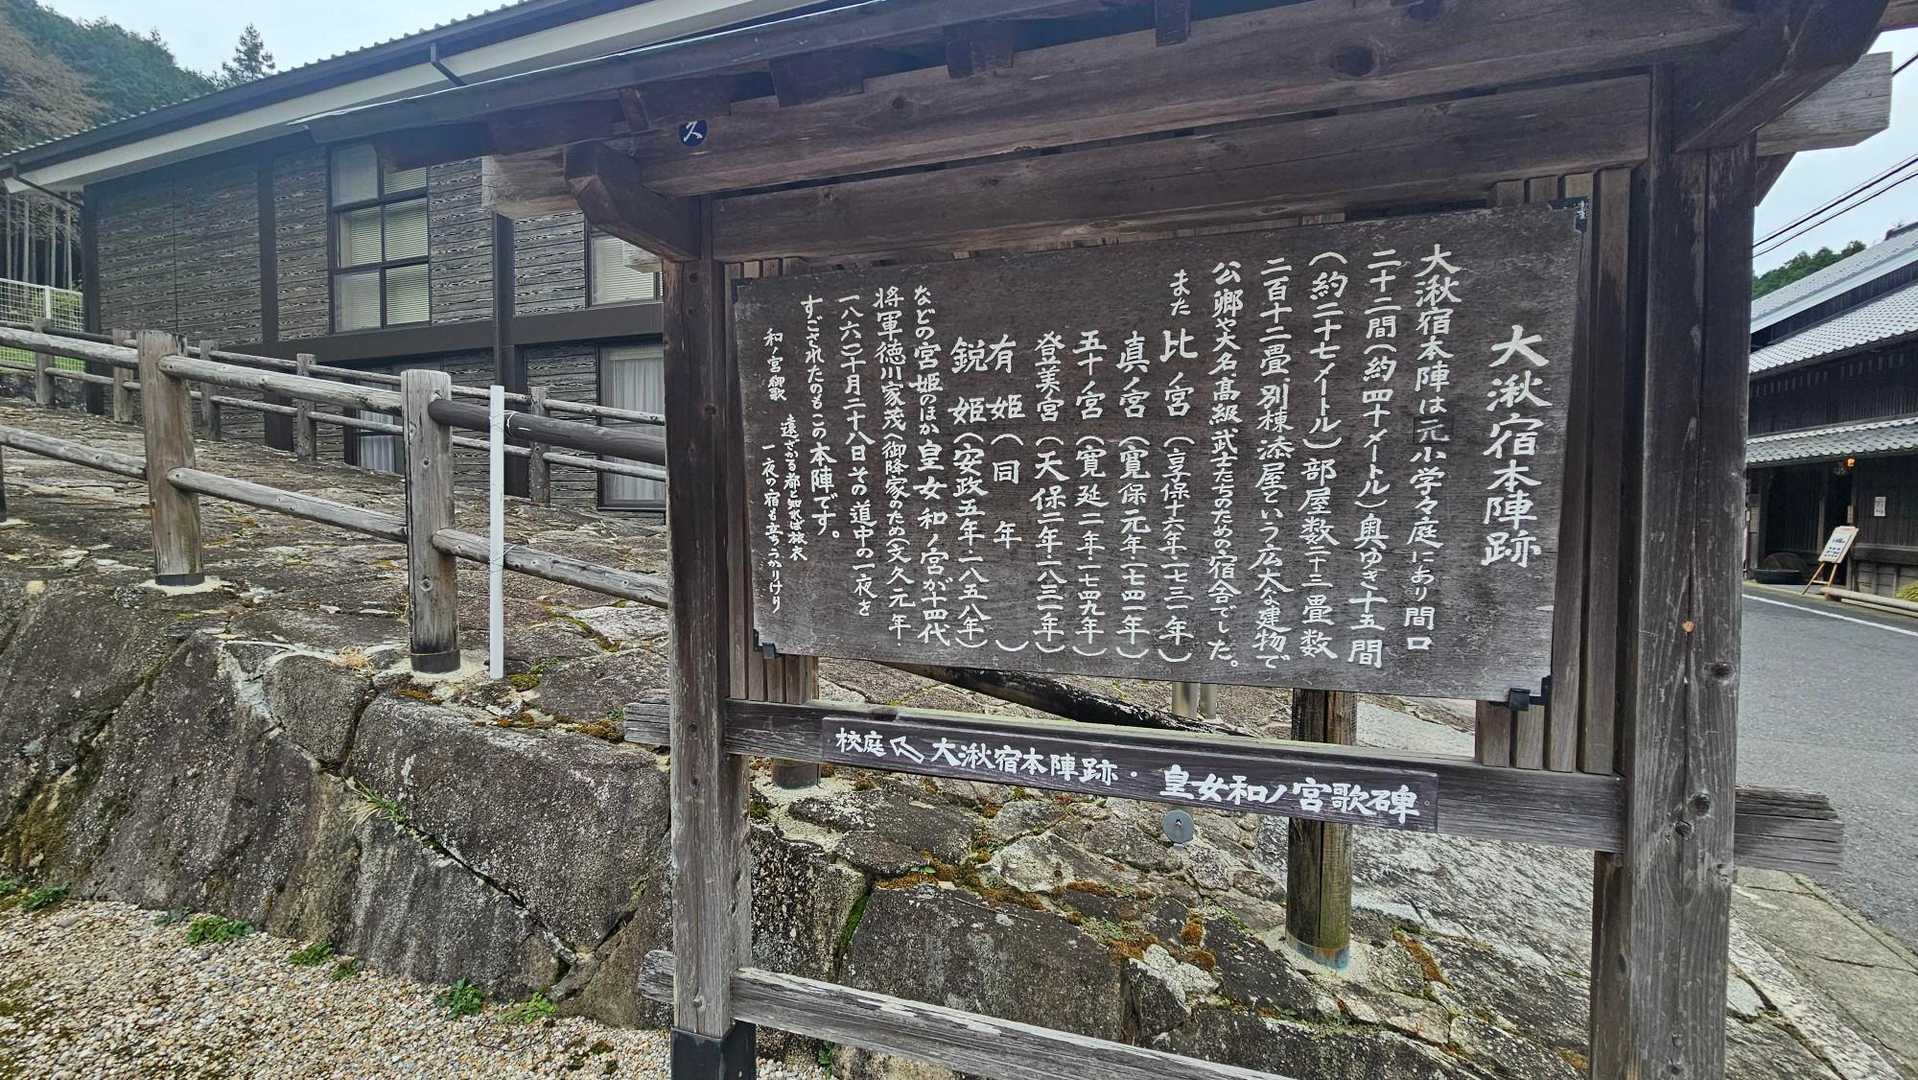 大湫宿本陣跡
大湫宿本陣は元小学々庭にあり間口
二十二間(約四十メートル)奥ゆき十五間
(約二十七メートル)部屋数二十三畳数
二百十二畳、別棟添屋という広大な建物で
公郷や大名、高級武士たちのための宿舎でした。
また 比ノ宮(享保十六年一七三一年)
真ノ宮(寛保元年一七四一年)
五十宮(寛延二年一七四九年)
登美宮(天保二年一八三一年)
有姫(同年)
鋭姫(安政五年一八五八年)
などの宮姫のほか皇女和ノ宮が十四代
将軍徳川家茂(御降家のため(文久元年
一八六一)十月二十八日その道中の一夜を
すごされたのもこの本陣です。
和ノ宮御歌 遠ざかる都と知れば旅衣
一夜の宿も立ちうかりけり
校庭 大湫宿本陣跡・皇女和ノ宮歌碑
久